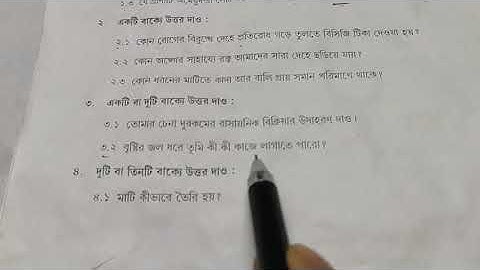 ২ একটি বাক্যে উত্তর দাও :
২.১ কোন রোগের বিরুদ্ধে দেহে প্রতিরোধ গড়ে তুলতে বিসিজি টিকা দেওয়া হয়?
২.২ কোন অঙ্গের সাহায্যে রক্ত আমাদের সারা দেহে ছড়িয়ে যায়?
২.৩ কোন ধরনের মাটিতে কাদা আর বালি প্রায় সমান পরিমাণে থাকে?
৩. একটি বা দুটি বাক্যে উত্তর দাও :
৩.১ তোমার চেনা দুরকমের রাসায়নিক বিক্রিয়ার উদাহরণ দাও।
৩.২ বৃষ্টির জল ধরে তুমি কী কী কাজে লাগাতে পারো?
৪. দুটি বা তিনটি বাক্যে উত্তর দাও :
৪.১ মাটি কীভাবে তৈরি হয়?